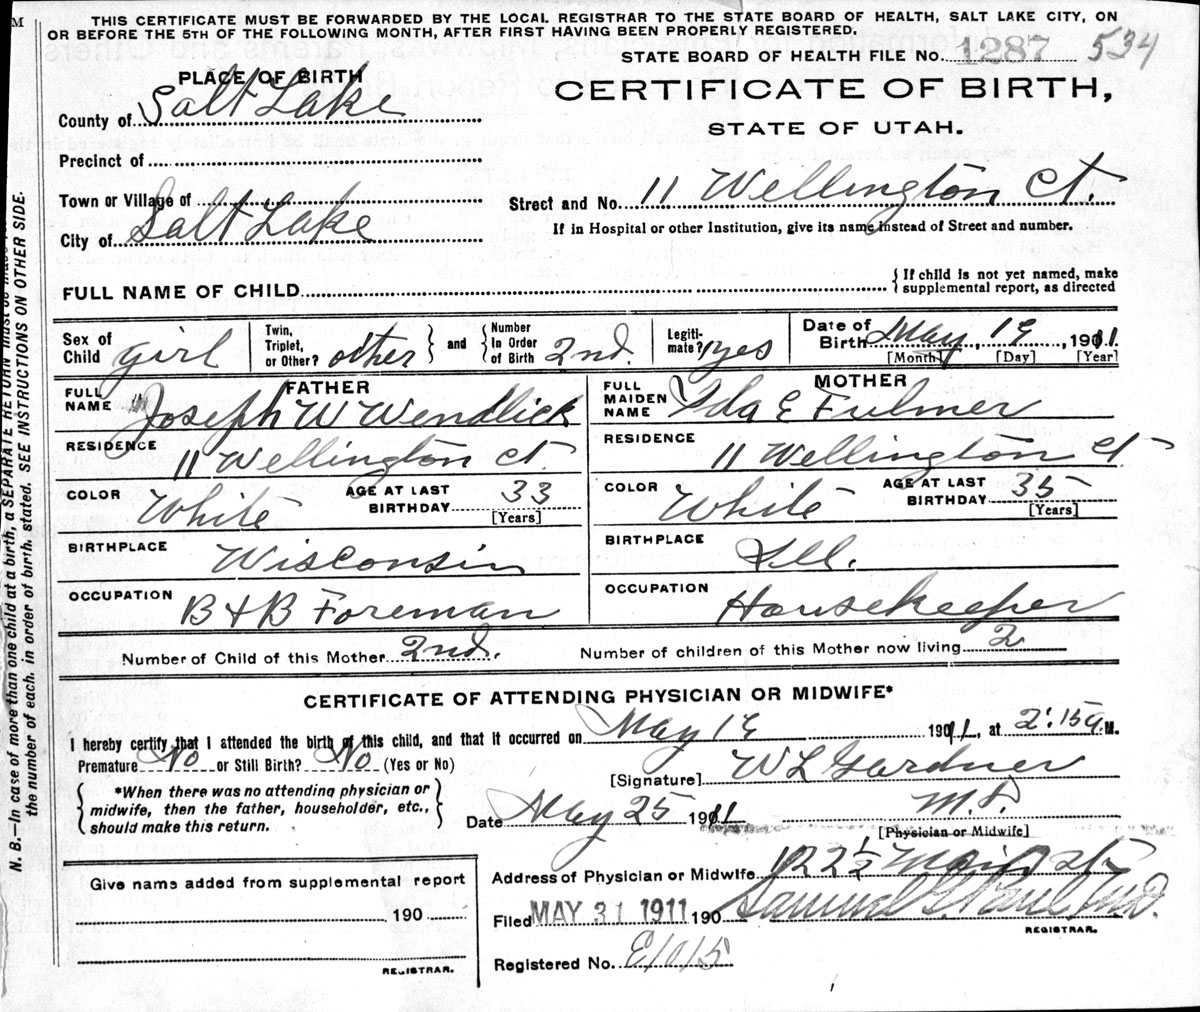 M
THIS CERTIFICATE MUST BE FORWARDED BY THE LOCAL REGISTRAR TO THE STATE BOARD OF HEALTH, SALT LAKE CITY, ON
OR BEFORE THE 5TH OF THE FOLLOWING MONTH, AFTER FIRST HAVING BEEN PROPERLY REGISTERED.
STATE BOARD OF HEALTH FILE No. 1287 534
PLACE OF BIRTH
CERTIFICATE OF BIRTH,
STATE OF UTAH.
County of Salt Lake
Precinct of
Town or Village of
Street and No. 11 Wellington Ct.
City of Salt Lake
If in Hospital or other Institution, give its name instead of Street and number.
FULL NAME OF CHILD
{If child is not yet named, make
supplemental report, as directed
Sex of Child girl
Twin, Triplet, or Other? other } and { Number In Order of Birth 2nd.
Legitimate? yes
Date of Birth May, 19, 1911
[Month] [Day] [Year]
FATHER
FULL NAME Joseph W Wendlick
MOTHER
FULL MAIDEN NAME Ida E Fulmer
RESIDENCE 11 Wellington Ct.
RESIDENCE 11 Wellington Ct
COLOR White AGE AT LAST BIRTHDAY 33 [Years]
COLOR White AGE AT LAST BIRTHDAY 35 [Years]
BIRTHPLACE Wisconsin
BIRTHPLACE Ill.
OCCUPATION B & B Foreman
OCCUPATION Housekeeper
Number of Child of this Mother 2nd. Number of children of this Mother now living 2
CERTIFICATE OF ATTENDING PHYSICIAN OR MIDWIFE*
I hereby certify that I attended the birth of this child, and that it occurred on May 19 1911, at 2:15 a. M.
Premature No or Still Birth? No (Yes or No)
[Signature] W L Gardner
M.D.
[Physician or Midwife]
{ *When there was no attending physician or
midwife, then the father, householder, etc.,
should make this return. }
Date May 25 1911
Address of Physician or Midwife 122 1/2 Main St
Give name added from supplemental report
190
REGISTRAR.
Filed MAY 31 1911 190 Samuel G. Paul, M.D.
REGISTRAR.
Registered No. E1015
N. B.—In case of more than one child at a birth, a SEPARATE RETURN must be made
the number of each, in order of birth, stated. SEE INSTRUCTIONS ON OTHER SIDE.